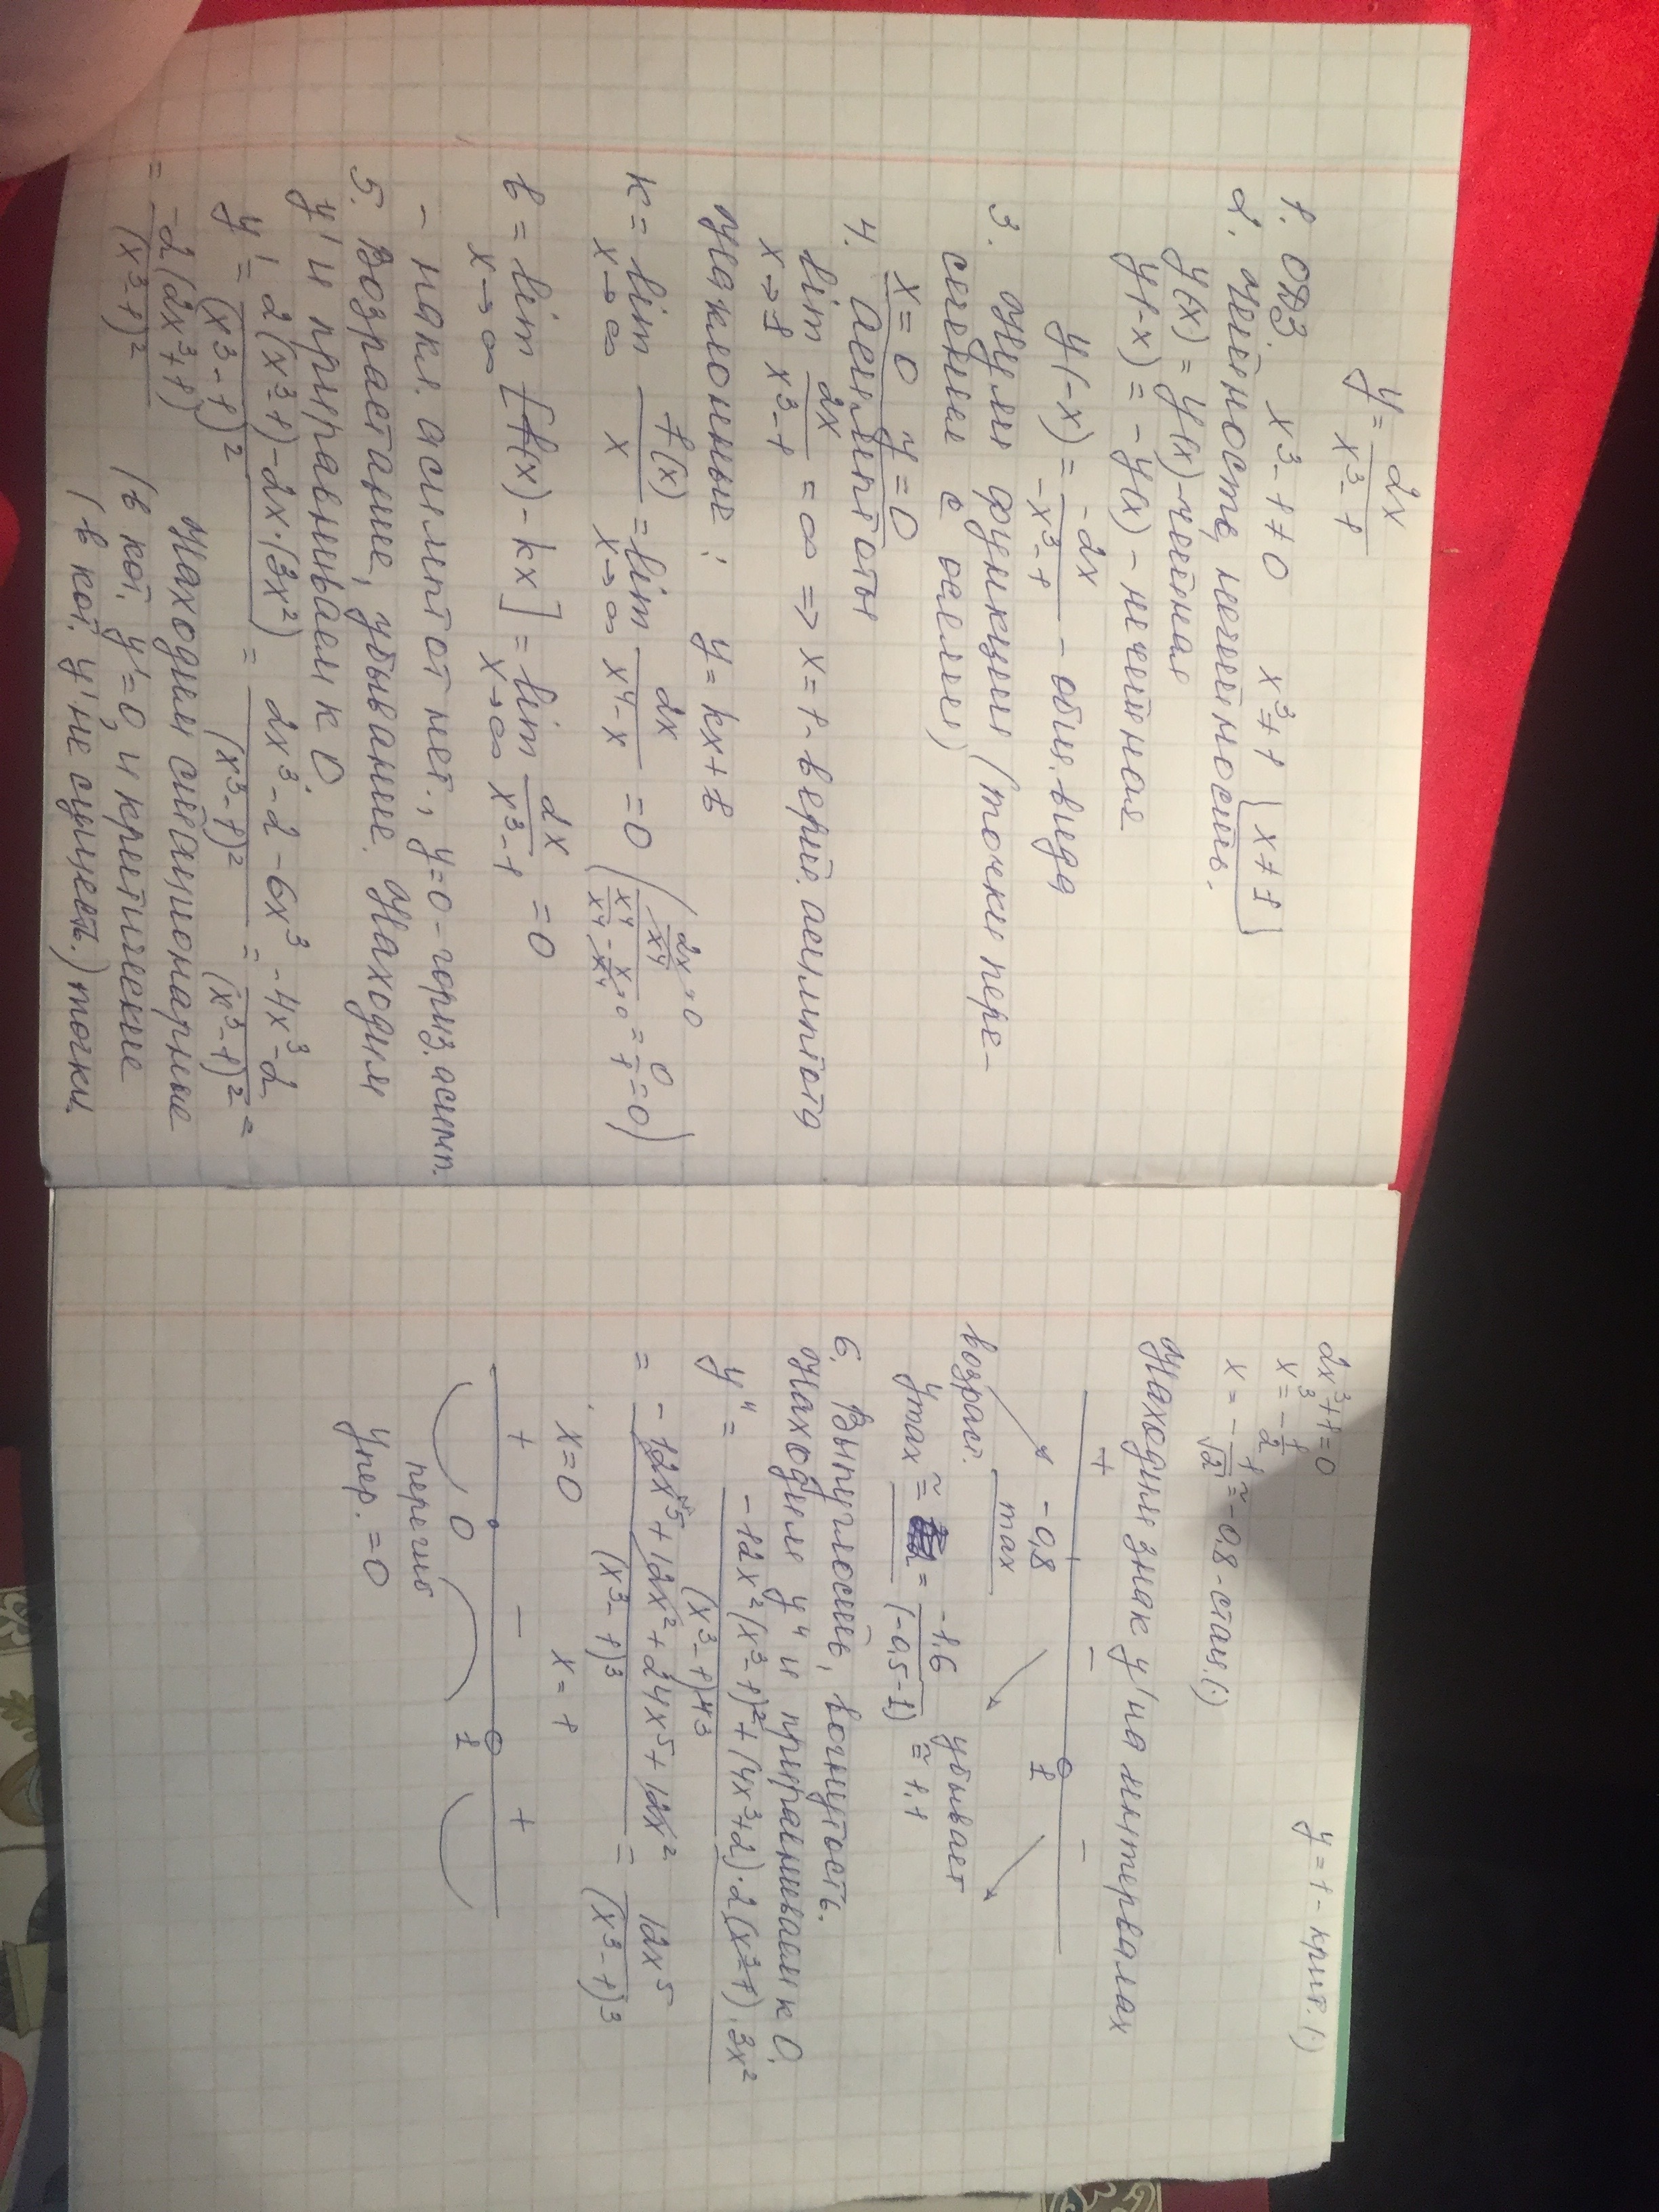 y = 2x / (x³ - 1)
1. ОДЗ. x³ - 1 ≠ 0 x³ ≠ 1 x ≠ 1
2. Четность, нечетность.
y(x) = y(x) - четная
y(-x) = - y(x) - нечетная
y(-x) = -2x / (-x³ - 1) - общ. вида
3. Нули функции (точки пере-
сечение с осями)
x = 0 y = 0
4. Асимптоты
lim x→1 2x / (x³ - 1) = ∞ => x = 1 - верт. асимптота
Наклонные: y = kx + b
k = lim x→∞ f(x) / x = lim x→∞ 2x / (x⁴ - x) = 0 ( (2x/x⁴ → 0) / (x⁴/x⁴ - x/x⁴ → 0) = 0/1 = 0 )
b = lim x→∞ [f(x) - kx] = lim x→∞ 2x / (x³ - 1) = 0
- накл. асимптот нет., y=0 - гориз. асимп.
5. Возрастание, убывание. Находим
y' и приравниваем к 0.
y' = (2(x³-1) - 2x·(3x²)) / (x³-1)² = (2x³ - 2 - 6x³) / (x³-1)² = (-4x³ - 2) / (x³-1)² =
= -2(2x³+1) / (x³-1)² Находим стационарные
(в кот. y'=0, и критические
(в кот. y' не существ.) точки.
2x³+1=0 y = 1 - крит. (·)
x³ = -1/2
x = - 1/√2 ≈ -0,8 - стац. (·)
Находим знак y' на интервалах
+ - -
-0,8 1
возраст. max убывает
ymax ≈ = -1,6 / (-0,5-1) ≈ 1,1
6. Выпуклость, вогнутость.
Находим y'' и приравниваем к 0.
y'' = (-12x²(x³-1)² + (4x³+2)·2(x³-1)·3x²) / (x³-1)⁴ ³
= (-12x⁵ + 12x² + 24x⁵ + 12x²) / (x³-1)³ = 12x⁵ / (x³-1)³
x = 0 x = 1
+ - +
0 1
перегиб
yпер. = 0